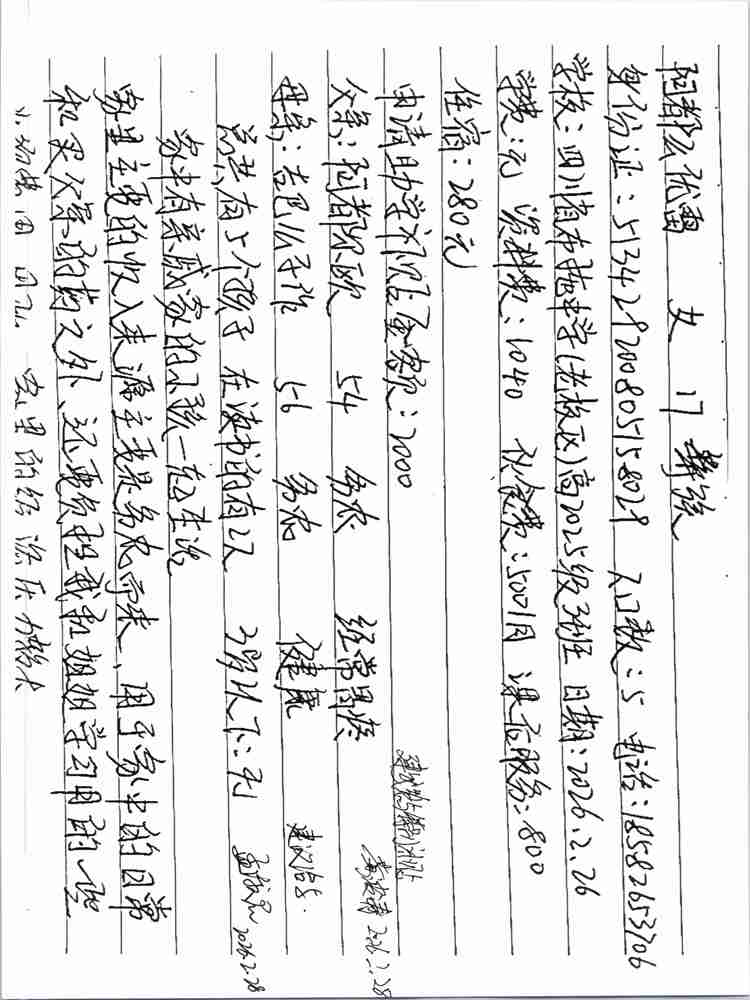 阿都么优雷 女 17 彝族
身份证：513429200805158029 人口数：5 电话：18582653706
学校：四川省布拖中学(老校区)高2025级3班 日期：2026.2.26
学费：元 资料费：1040 伙食费：500/月 课后服务：800
住宿：280元
申请助学 金额：2000
父亲：阿都 欧 54 务农 经常 
母亲：吉巴么子 56 务农 健康
总共有5个孩子 在读书的有2人 2岁以下：无
家中有亲戚家的小孩一起生活
家里主要的收入来源主要是务农而来、用于家中的日常
和买父亲的药之外、还要负担我和姐姐学习用的一些
家里的经济压力较大
2026.2.28
建议给予.
2026.2.28